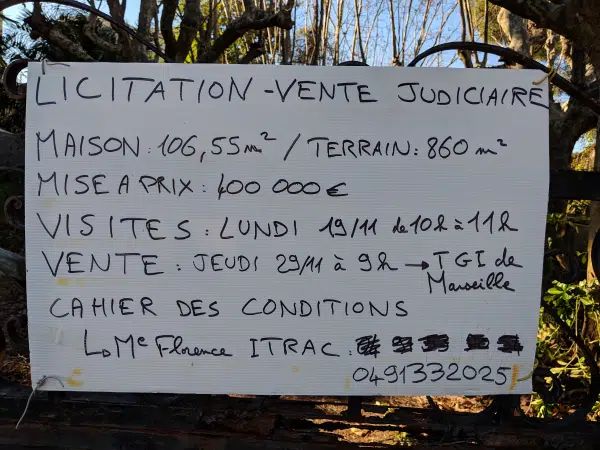 LICITATION - VENTE JUDICIAIRE
MAISON : 106,55 m² / TERRAIN : 860 m²
MISE A PRIX : 400 000 €
VISITES : LUNDI 19/11 de 10h à 11h
VENTE : JEUDI 29/11 à 9h → TGI de
Marseille
CAHIER DES CONDITIONS
Me Florence ITRAC :
0491332025